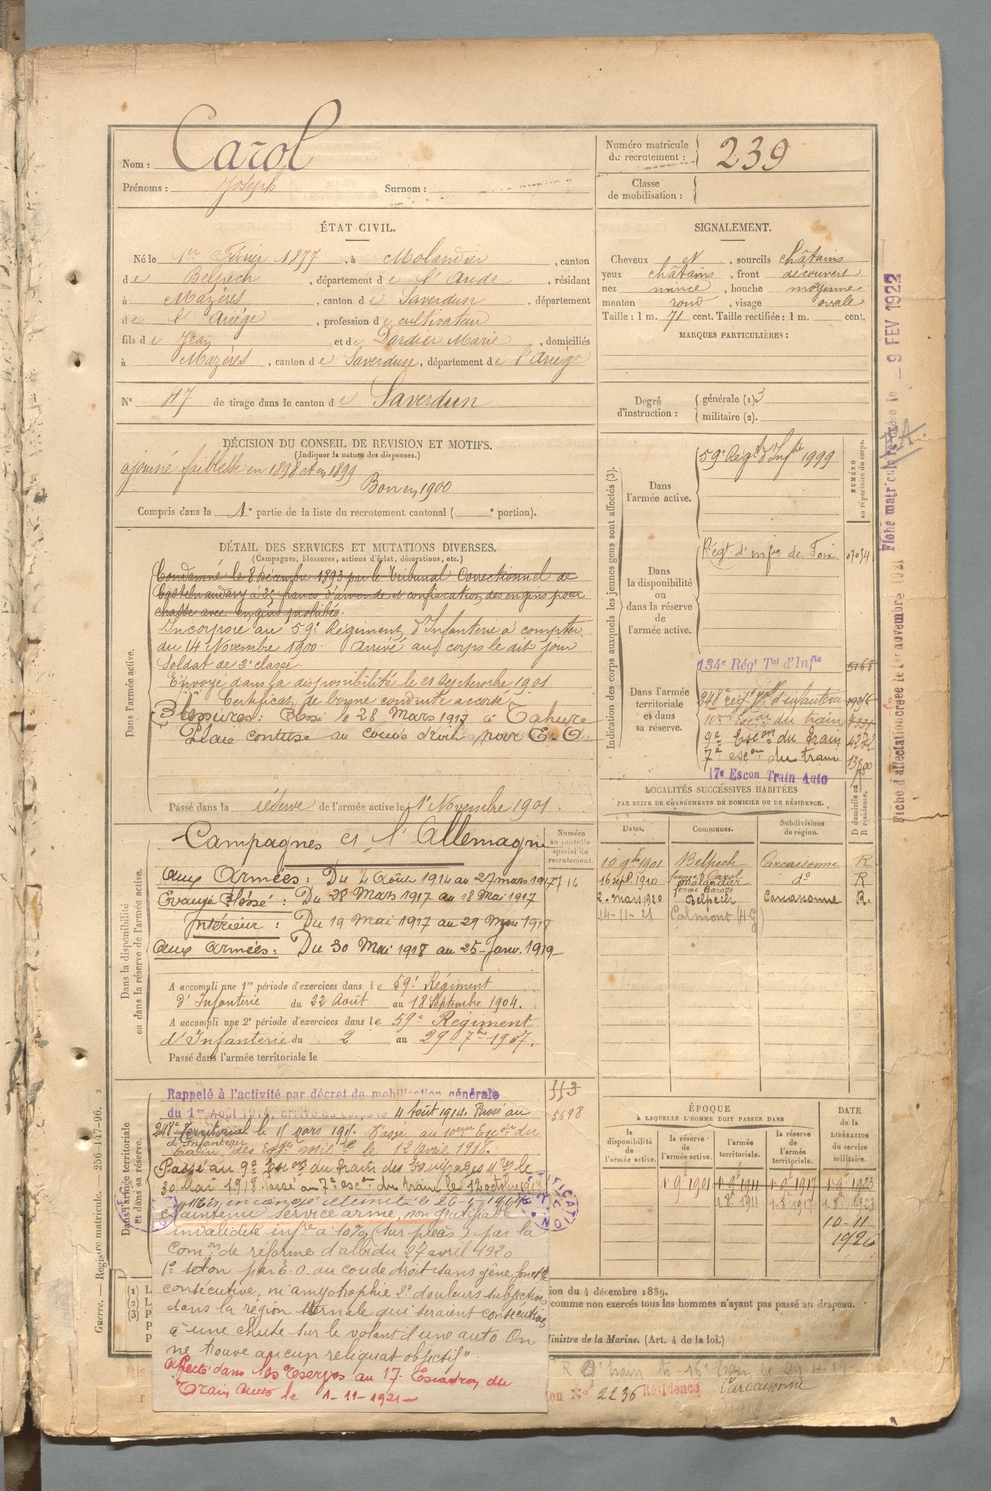 Nom : Carol
Prénoms : Joseph Surnom :
Numéro matricule du recrutement : 239
Classe de mobilisation :
ÉTAT CIVIL.
Né le 1er Février 1877, à Molandier, canton
de Belpech, département de l'Aude, résidant
à Mazères, canton de Saverdun, département
de l'Ariège, profession de cultivateur
fils de Jean et de Dardier Marie, domiciliés
à Mazères, canton de Saverdun, département de l'Ariège
N° 47 de tirage dans le canton de Saverdun
SIGNALEMENT.
Cheveux et, sourcils châtains
yeux châtains, front découvert
nez mince, bouche moyenne
menton rond, visage ovale
Taille : 1 m. 71 cent. Taille rectifiée : 1 m. cent.
MARQUES PARTICULIÈRES :
Degré d'instruction : générale (1) 3
militaire (2).
DÉCISION DU CONSEIL DE REVISION ET MOTIFS.
(Indiquer la nature des dispenses.)
ajourné faiblesse en 1898 et en 1899
Bon en 1900
Compris dans la 1e partie de la liste du recrutement cantonal ( e portion).
DÉTAIL DES SERVICES ET MUTATIONS DIVERSES.
(Campagnes, blessures, actions d'éclat, décorations, etc.)
Dans l'armée active.
Condamné le 8 décembre 1893 par le Tribunal Correctionnel de
Castelnaudary à 25 francs d'amende et confiscation des engins pour
chasse avec engins prohibés.
Incorporé au 59e Régiment d'Infanterie à compter
du 14 Novembre 1900. Arrivé au corps le dit jour
Soldat de 2e classe
Envoyé dans la disponibilité le 21 Septembre 1901
Certificat de bonne conduite accordé
Blessures : Blessé le 28 Mars 1917 à Tahure
Plaie contuse au coude droit par E. O.
Passé dans la réserve de l'armée active le 1er Novembre 1901.
Dans la disponibilité ou dans la réserve de l'armée active.
Campagnes et l'Allemagne
Aux Armées : Du 4 Août 1914 au 27 mars 1917
Evacué Blessé : Du 28 Mars 1917 au 18 Mai 1917
Intérieur : Du 19 Mai 1917 au 29 Mai 1918
Aux Armées : Du 30 Mai 1918 au 25 Janv. 1919
A accompli une 1re période d'exercices dans le 59e Régiment
d'Infanterie du 22 Août au 18 Septembre 1904.
A accompli une 2e période d'exercices dans le 59e Régiment
d'Infanterie du 2 au 29 7bre 1907.
Passé dans l'armée territoriale le
Numéro au contrôle spécial du recrutement.
Dans l'armée territoriale et dans sa réserve.
Rappelé à l'activité par décret de mobilisation générale
du 1er Août 1914 arrivé au corps le 4 Août 1914. Passé au
248e Territorial d'Infanterie le 11 mars 191
le 12 avril 1918.
Passé au 9e Escon du train des équipages mres le
30 mai 1918. Passé au 7e escon du train le 12 octobre 1918
Mis en congé illimité le 26
Maintenu service armé, non
invalidité infre à 10% (sur pièces) par la
Comon de réforme d'Albi du 27 avril 1920
par E. O. au coude droit sans gêne fonctle
consécutive, ni amyotrophie 2° douleurs subjectives
dans la région sternale qui seraient consécutives
à une chute sur le volant d'une auto. On
ne trouve aucun reliquat objectif"
affecté dans les réserves au 17e Escadron du
Train Auto le 1-11-1921
Indication des corps auxquels les jeunes gens sont affectés (3).
NUMÉRO au répertoire du corps.
Dans l'armée active.
59e Régt d'Infie 1999
Dans la disponibilité ou dans la réserve de l'armée active.
Régt d'infie de Foix
Dans l'armée territoriale et dans sa réserve.
134e Régt Tal d'Infie 5168
248e régt d'infanterie
du train
9e Escon du train
7e escon du train
17e Escon Train Auto
LOCALITÉS SUCCESSIVES HABITÉES
PAR SUITE DE CHANGEMENTS DE DOMICILE OU DE RÉSIDENCE.
Dates. Communes. Subdivisions de région. D domicile ou R résidence.
10 9bre 1901 Belpech Carcassonne R
16 sept 1910 ferme Carol Molandier do R
2 mars 1920 Belpech Carcassonne R
14-11-21 Calmont (H-G)
ÉPOQUE
À LAQUELLE L'HOMME DOIT PASSER DANS
la disponibilité de l'armée active. la réserve de l'armée active. l'armée territoriale. la réserve de l'armée territoriale.
DATE de la LIBÉRATION du service militaire.
1 9e 1901
10-11 1926
ion du 4 décembre 1889.
comme non exercés tous les hommes n'ayant pas passé au drapeau.
Ministre de la Marine. (Art. 4 de la loi.)
N° 2236 Résidence Carcassonne
Guerre. — Registre matricule. — 256-147-96.
Fiche matriculaire créée le - 9 FEV 1922
Fiche d'affectation créée le 1er novembre 1921